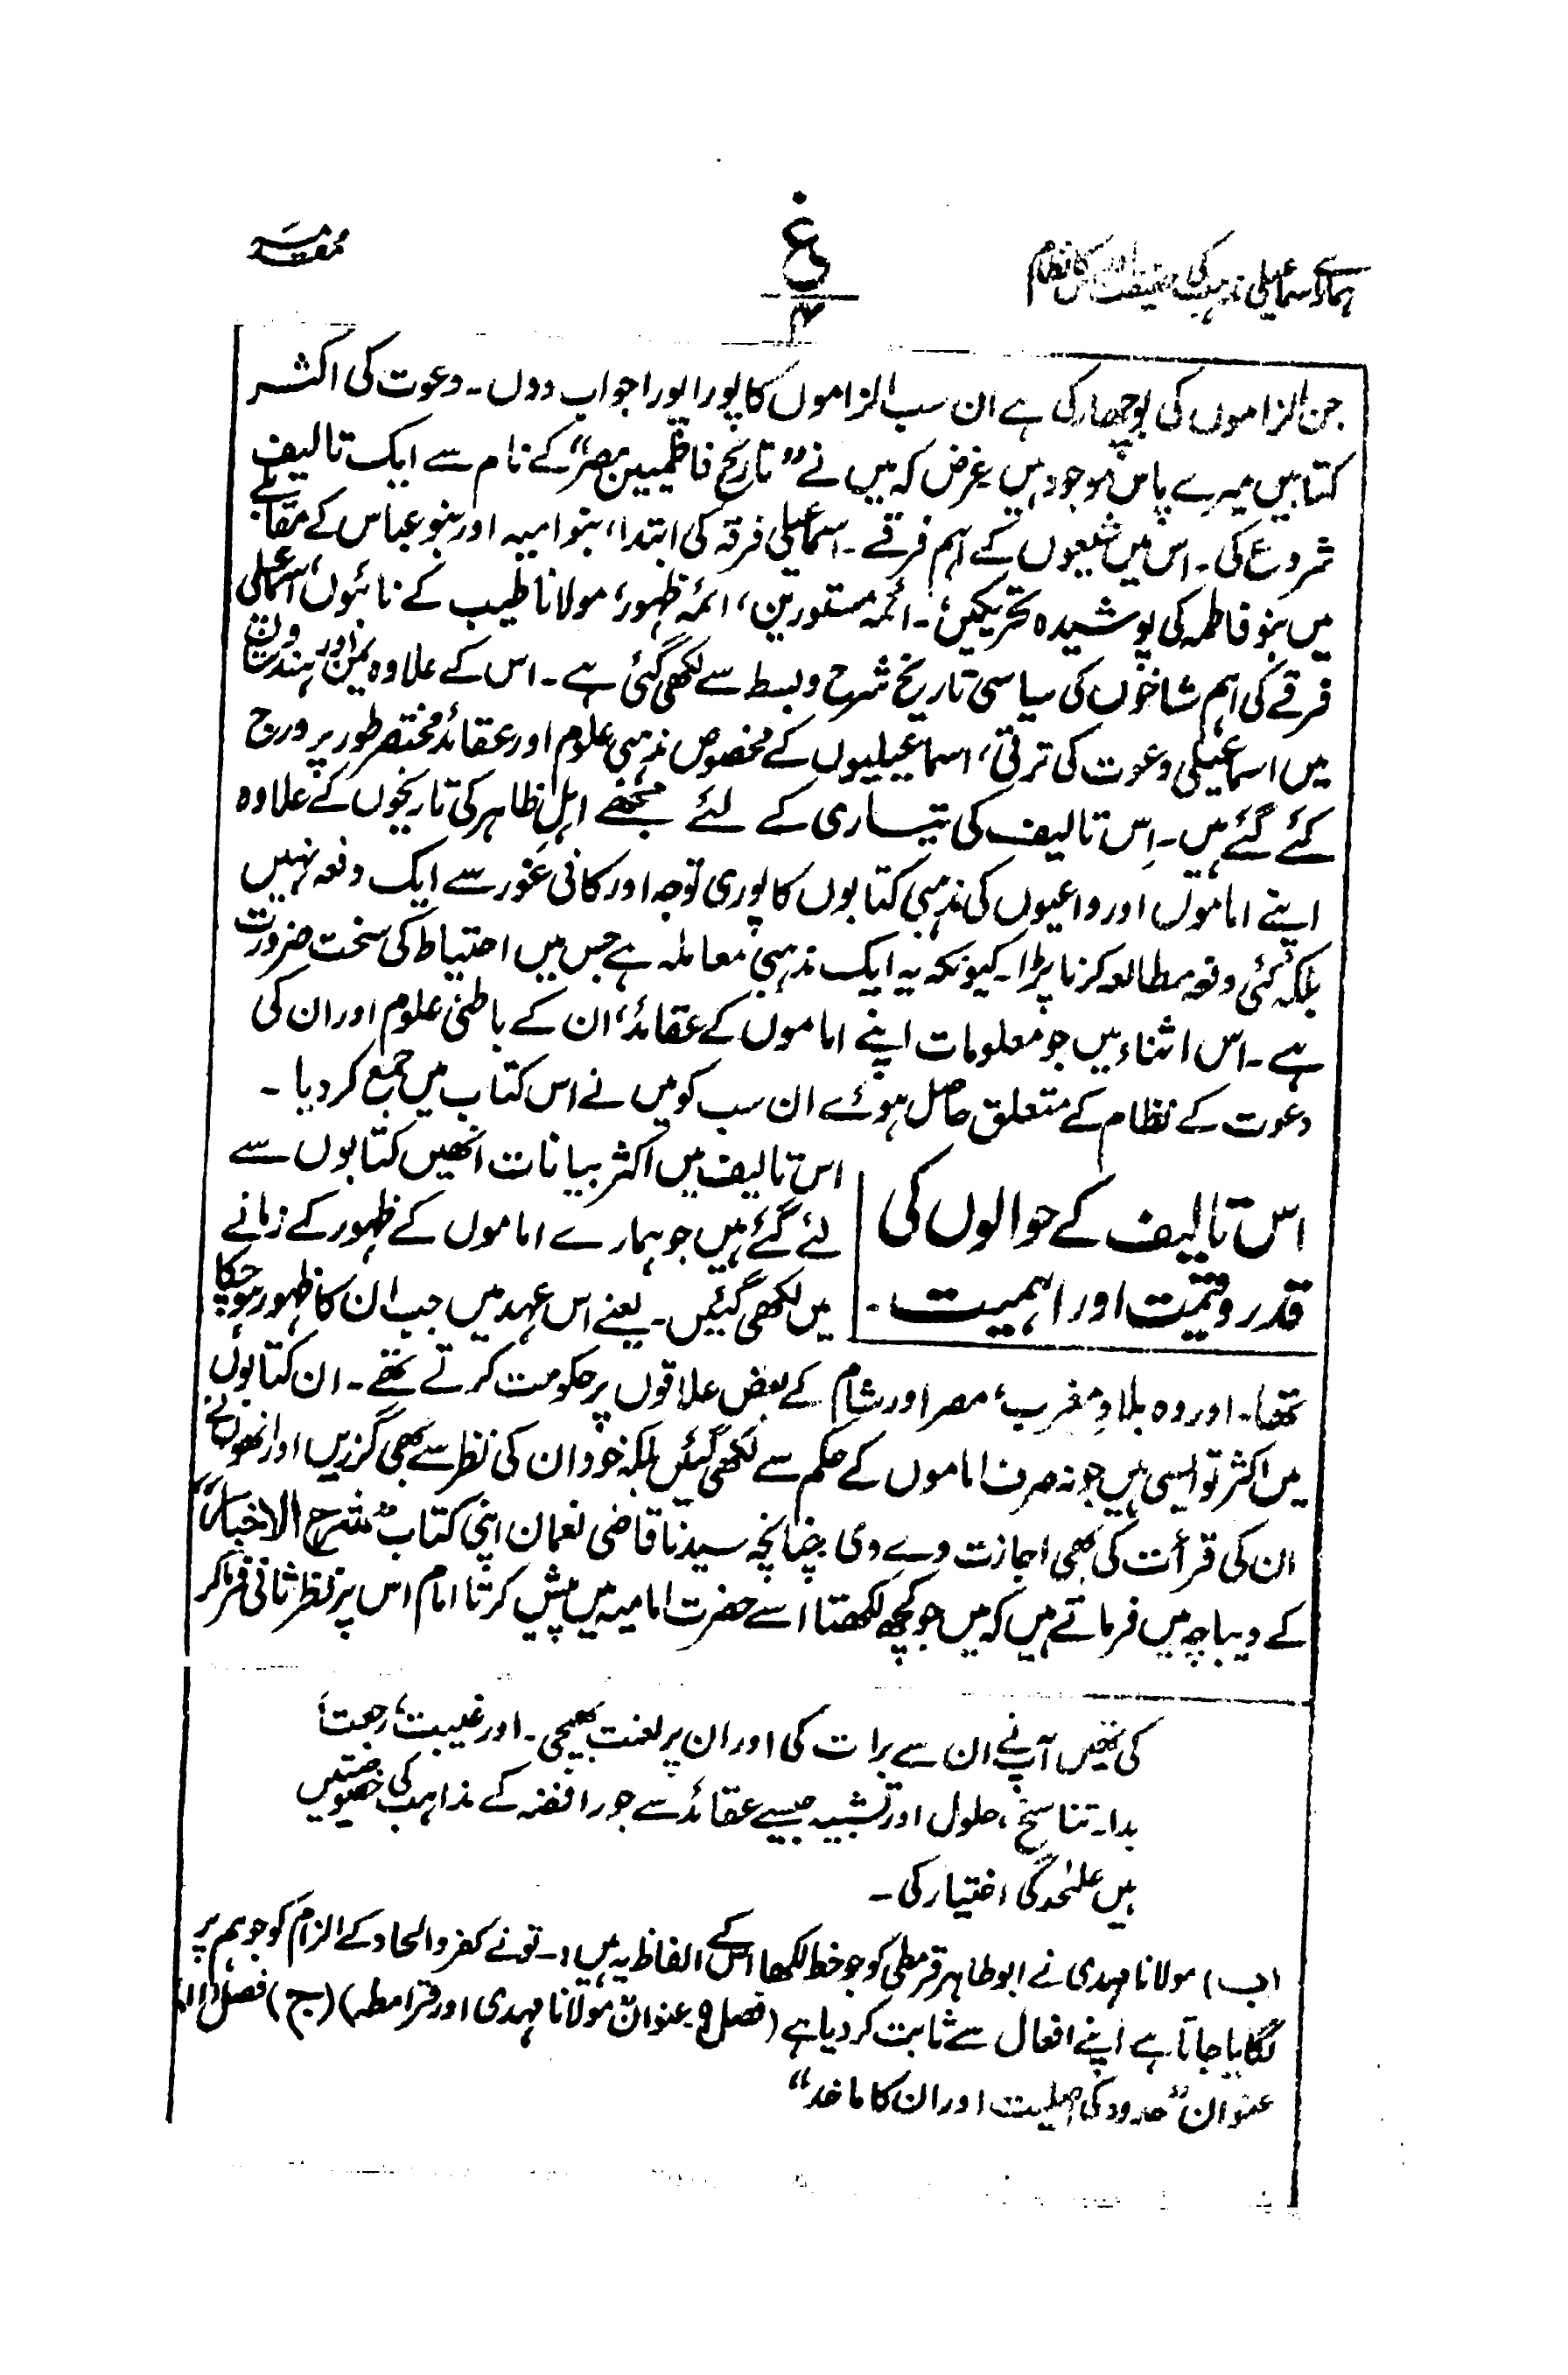 ہمارے اسماعیلی مذہب کی حقیقت اور اس کا نظام
غ
۴
مقدمہ
جن الزاموں کی بوچھار کی ہے ان سب الزاموں کا پورا پورا جواب دوں۔ دعوت کی اکثر
کتابیں میرے پاس موجود ہیں غرض کہ میں نے ”تاریخ فاطمیین مصر“ کے نام سے ایک تالیف
شروع کی۔ اس میں شیعوں کے اہم فرقے۔ اسماعیلی فرقہ کی ابتدا، بنو امیہ اور بنو عباس کے مقابلے
میں بنو فاطمہ کی پوشیدہ تحریکیں۔ ائمہ مستورین، ائمہ ظہور، مولانا طیب کے نائبوں، اسماعیلی
فرقے کی اہم شاخوں کی سیاسی تاریخ شرح و بسط سے لکھی گئی ہے۔ اس کے علاوہ یمن اور ہندوستان
میں اسماعیلی دعوت کی ترقی، اسماعیلیوں کے مخصوص مذہبی علوم اور عقائد مختصر طور پر درج
کئے گئے ہیں۔ اِس تالیف کی تیاری کے لئے مجھے اہلِ ظاہر کی تاریخوں کے علاوہ
اپنے اماموں اور داعیوں کی مذہبی کتابوں کا پوری توجہ اور کافی غور سے ایک دفعہ نہیں
بلکہ کئی دفعہ مطالعہ کرنا پڑا۔ کیونکہ یہ ایک مذہبی معاملہ ہے جس میں احتیاط کی سخت ضرورت
ہے۔ اس اثناء میں جو معلومات اپنے اماموں کے عقائد، ان کے باطنی علوم اور ان کی
دعوت کے نظام کے متعلق حاصل ہوئے ان سب کو میں نے اس کتاب میں جمع کر دیا۔
اس تالیف کے حوالوں کی
قدر و قیمت اور اہمیت۔
اس تالیف میں اکثر بیانات انھیں کتابوں سے
لئے گئے ہیں جو ہمارے اماموں کے ظہور کے زمانے
میں لکھی گئیں۔ یعنے اس عہد میں جب ان کا ظہور ہو چکا
تھا۔ اور وہ بلادِ مغرب، مصر اور شام کے بعض علاقوں پر حکومت کرتے تھے۔ ان کتابوں
میں اکثر تو ایسی ہیں جو نہ صرف اماموں کے حکم سے لکھی گئیں بلکہ خود ان کی نظر سے بھی گزریں اور انھوں نے
ان کی قرأت کی بھی اجازت دے دی چنانچہ سیدنا قاضی نعمان اپنی کتاب ”شرح الاخبار“
کے دیباچہ میں فرماتے ہیں کہ میں جو کچھ لکھتا اسے حضرت امامیہ میں پیش کرتا امام اس پر نظر ثانی فرما کر
کی تھیں آپ نے ان سے برات کی اور ان پر لعنت بھیجی۔ اور غیبت، رجعت،
بدا۔ تناسخ، حلول اور تشبیہ جیسے عقائد سے جو رافضہ کے مذاہب کی خصوصیتیں
ہیں علٰحدگی اختیار کی۔
(ب) مولانا مہدی نے ابو طاہر قرمطی کو جو خط لکھا اس کے الفاظ یہ ہیں :۔ تو نے کفر و الحاد کے الزام کو جو ہم پر
لگایا جاتا ہے اپنے افعال سے ثابت کر دیا ہے (فصل ۹۔ عنوان مولانا مہدی اور قرامطہ) (ج) فصل
عنوان ”حدود کی اصلیت اور ان کا ماخذ“